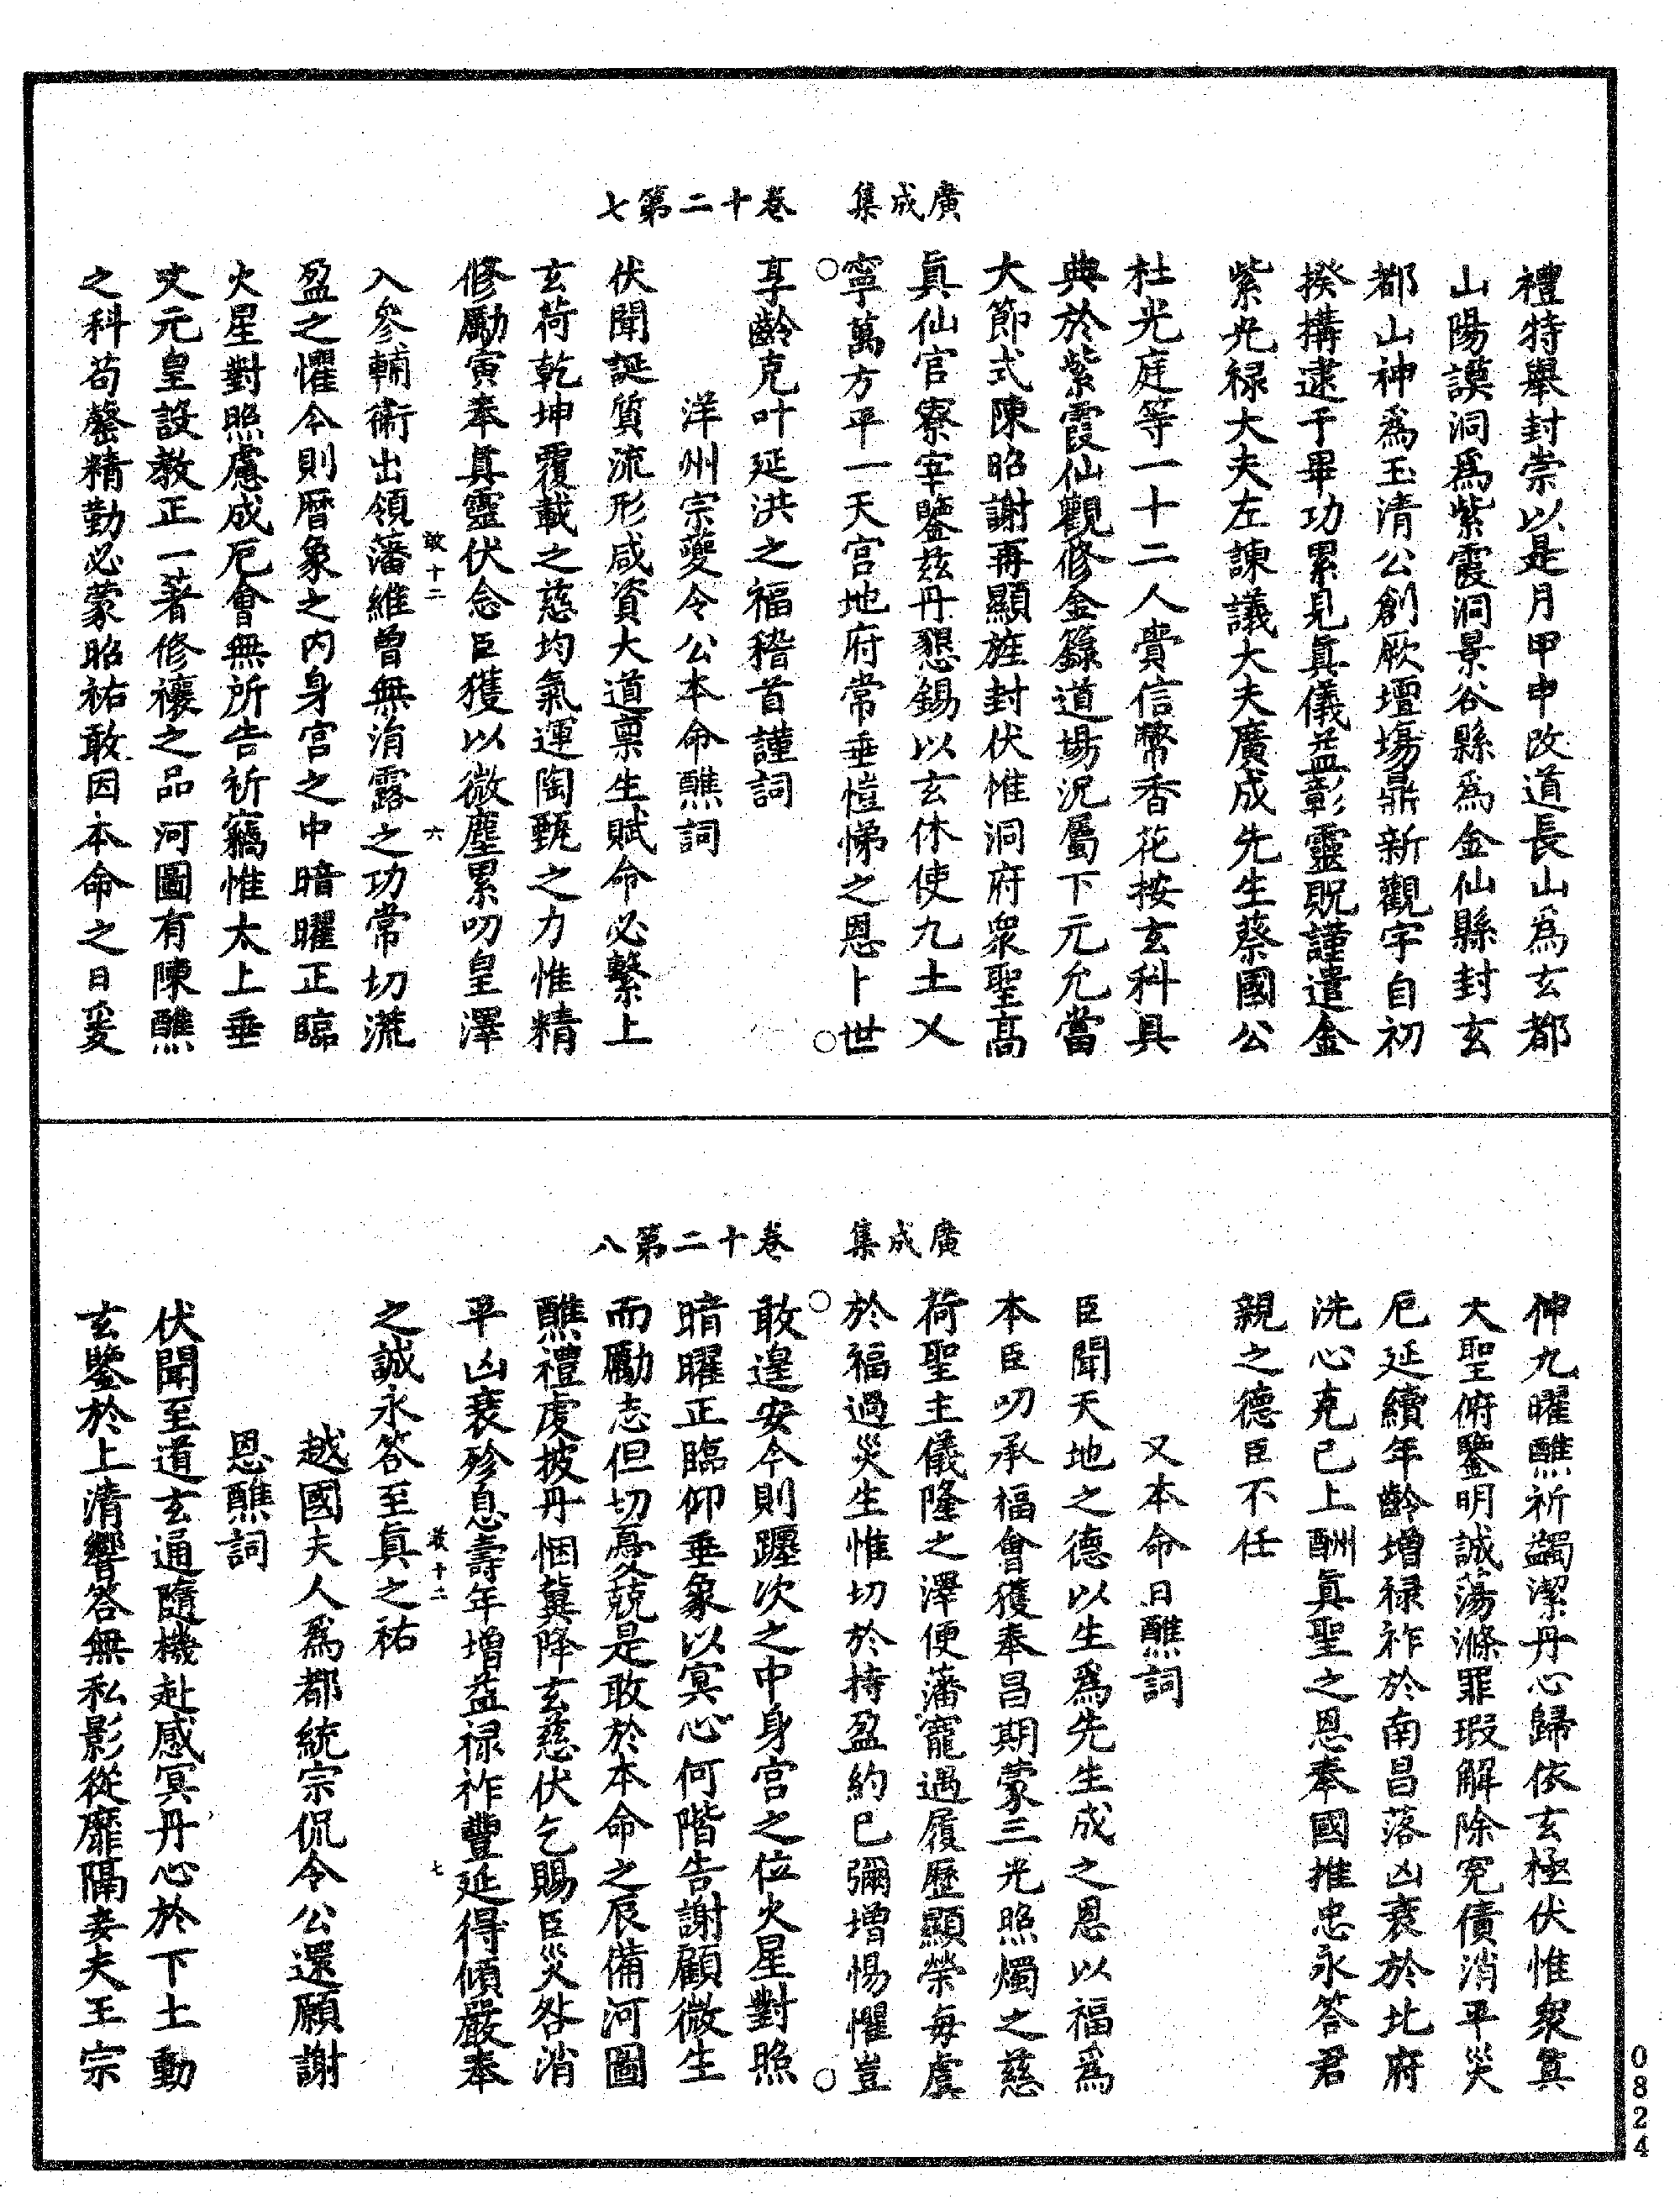 廣成集　卷十二第七
禮特舉封崇以是月甲申改道長山爲玄都
山陽謨洞爲紫霞洞景谷縣爲金仙縣封玄
都山神爲玉清公創厥壇場鼎新觀宇自初
揆構逮于畢功累見真儀益彰靈貺謹遣金
紫光禄大夫左諫議大夫廣成先生蔡國公
杜光庭等一十二人賫信幣香花按玄科具
典於紫霞仙觀修金籙道場况屬下元允當
大節式陳昭謝再顯旌封伏惟洞府衆聖高
真仙官寮宰鑒兹丹懇錫以玄休使九土乂
寧萬方平一天宫地府常垂愷悌之恩卜世
享齡克叶延洪之福稽首謹詞
洋州宗夔令公本命醮詞
伏聞誕質流形咸資大道禀生賦命必繫上
玄荷乾坤覆載之慈均氣運陶甄之力惟精
修勵寅奉真靈伏念臣獲以微塵累叨皇澤
敢十二　六
入參輔衛出領藩維曾無涓露之功常切滿
盈之懼今則曆象之内身宫之中暗曜正臨
火星對照慮成厄會無所告祈竊惟太上垂
文元皇設教正一著修禳之品河圖有陳醮
之科苟罄精勤必蒙昭祐敢因本命之日爰
廣成集　卷十二第八
伸九曜醮祈蠲潔丹心歸依玄極伏惟衆真
大聖俯鑒明誠蕩滌罪瑕解除寃債消平災
厄延續年齡增禄祚於南昌落凶衰於北府
洗心克已上酬真聖之恩奉國推忠永答君
親之德臣不任
又本命日醮詞
臣聞天地之德以生爲先生成之恩以福爲
本臣叨承福會獲奉昌期蒙三光照燭之慈
荷聖主儀隆之澤便藩寵遇履歷顯榮每虞
於福過災生惟切於持盈約已彌增惕懼豈
敢遑安今則躔次之中身宫之位火星對照
暗曜正臨仰垂象以冥心何階告謝顧微生
而勵志但切憂兢是敢於本命之辰備河圖
醮禮虔披丹悃冀降玄慈伏乞賜臣災咎消
平凶衰殄息壽年增益禄祚豐延得傾嚴奉
敢十二　七
之誠永答至真之祐
越國夫人爲都統宗侃令公還願謝
恩醮詞
伏聞至道玄通隨機赴感冥丹心於下土動
玄鑒於上清響答無私影從靡隔妾夫王宗
0824